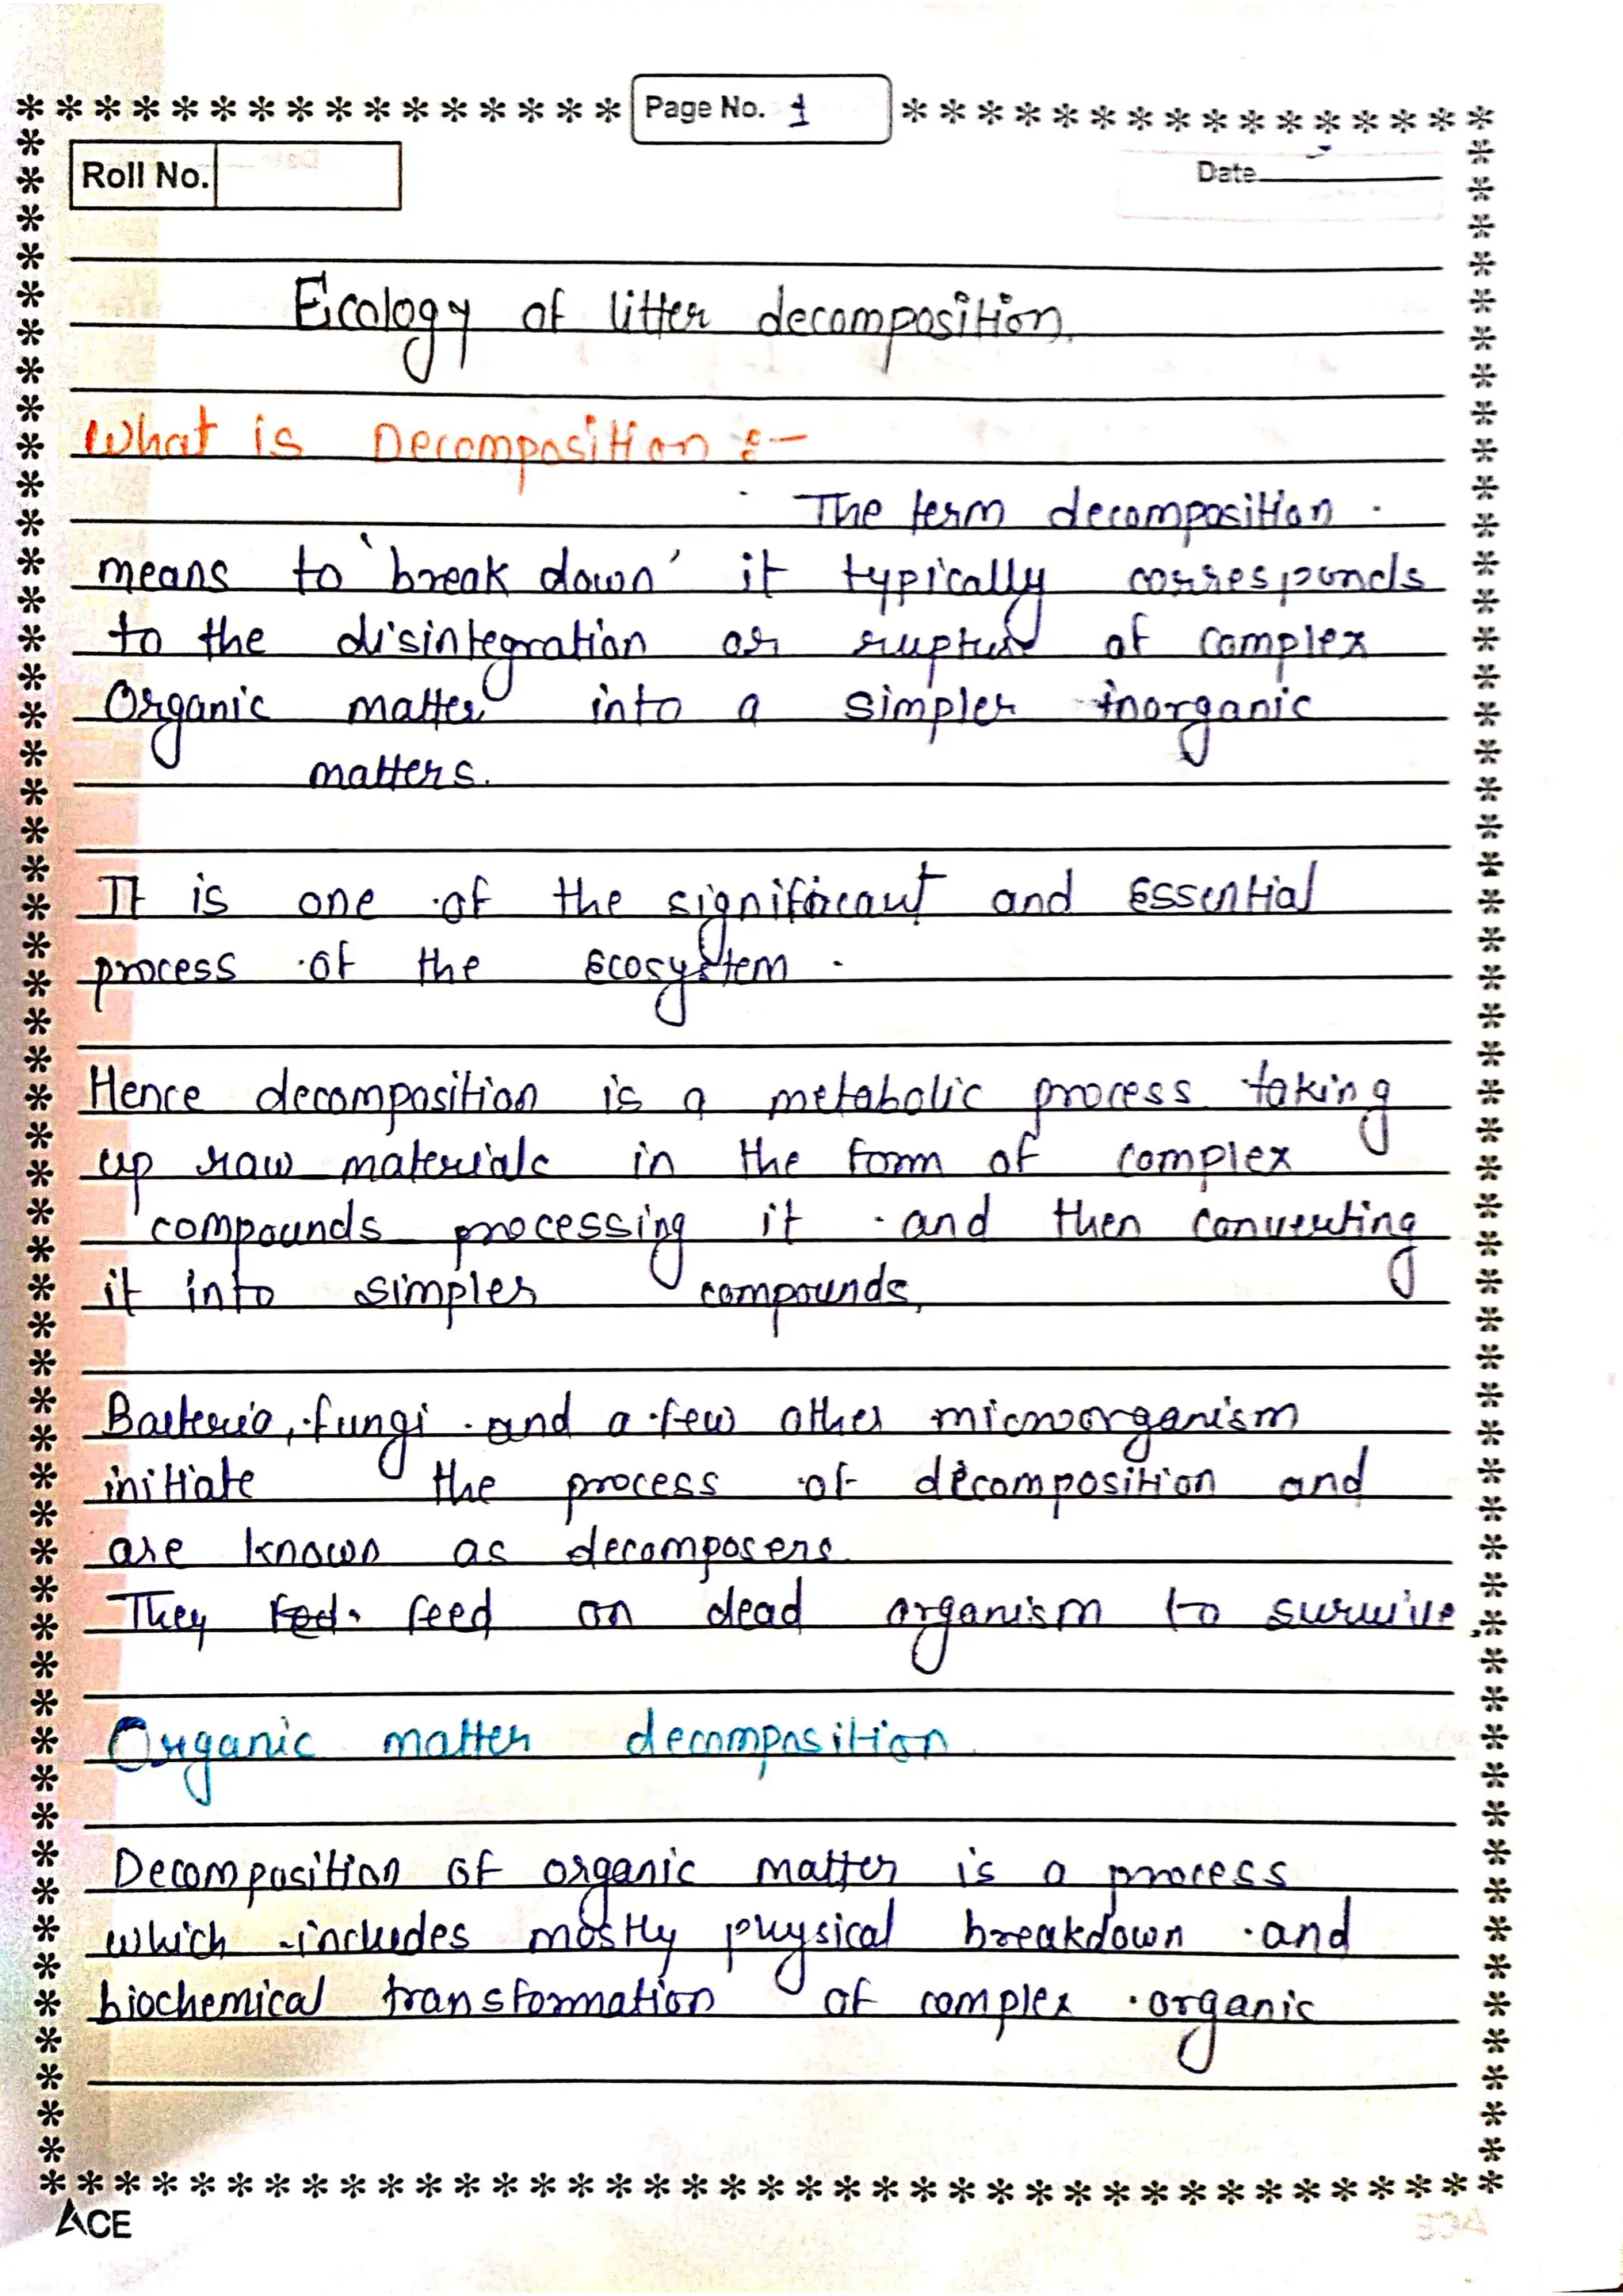 Page No. 1
Roll No.
Date
Ecology of litter decomposition.
What is Decomposition :-
The term decomposition
means to 'break down' it typically corresponds
to the disintegration or rupture of complex
Organic matter into a simpler inorganic
matters.
It is one of the significant and essential
process of the ecosystem.
Hence decomposition is a metabolic process taking
up raw materials in the form of complex
compounds processing it and then converting
it into simpler compounds.
Bacteria, fungi and a few other microorganism
initiate the process of decomposition and
are known as decomposers
They fed feed on dead organism to survive.
Organic matter decomposition
Decomposition of organic matter is a process
which includes mostly physical breakdown and
biochemical transformation of complex organic
ACE